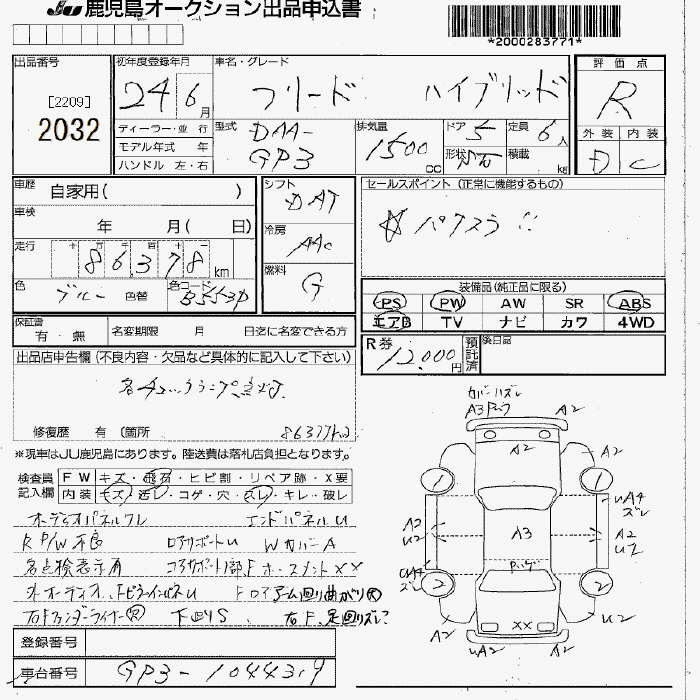 JU 鹿児島オークション出品申込書
*2000283771*
出品番号
[2209]
2032
初年度登録年月
24 6月
車名・グレード
フリード ハイブリッド
評価点
R
外装 内装
D C
ディーラー・並行
モデル年式 年
ハンドル 左・右
型式
DAA-
GP3
排気量
1500cc
ドア 5
形状
定員 6人
積載 kg
車歴
自家用( )
車検
年 月( 日)
走行 十 万 千 百 十 一
86378 km
色 ブルー 色替
色コード B553P
シフト
DAT
冷房
AAC
燃料
G
セールスポイント (正常に機能するもの)
パワスラ
装備品(純正品に限る)
PS PW AW SR ABS
エアB TV ナビ カワ 4WD
保証書
有・無
名変期限 月 日迄に名変できる方
R券 12,000円
預託済
後日品
出品店申告欄 (不良内容・欠品など具体的に記入して下さい)
各チェックランプ点灯
修復歴 有 (箇所
86377km
※現車はJU鹿児島にあります。陸送費は落札店負担となります。
検査員
記入欄
FW キズ・飛石・ヒビ割・リペア跡・X要
内装 キズ・汚レ・コゲ・穴・スレ・キレ・破レ
オーディオパネルワレ エンドパネルU
R P/W不良 コアサポートU WカバーA
各点検表示有
下廻りS
登録番号
車台番号 GP3-1044319
カバーハズレ
A3 A2
A2
A2
1 1
UA4
ズレ
A2
U2
A3
A2
U2
UA4
ズレ
2 2
A2
XX
U2
UA2
A2